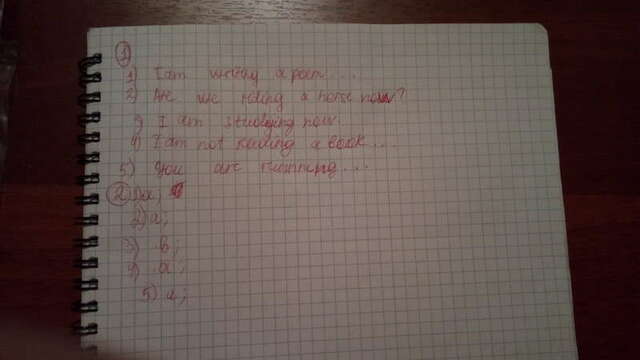 1
1) I am writing a poem...
2) Are we riding a horse now?
3) I am studying now.
4) I am not reading a book...
5) You are running...
2 1) a;
2) a;
3) b;
4) a;
5) a;